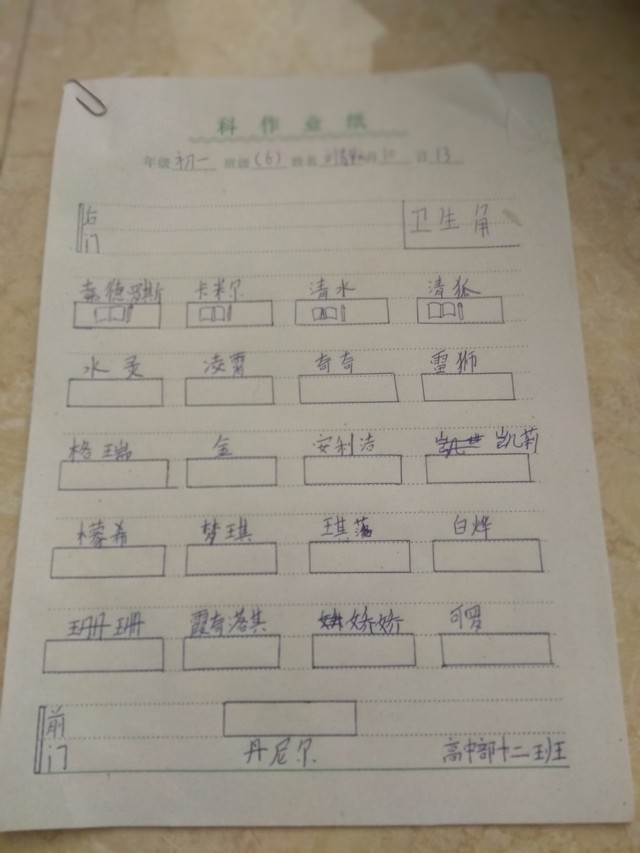 科作业纸
年级 初一 班级 (6) 姓名 月 10 日 13
后门 卫生角
卡米尔 清水 清狐
水灵 凌霄 奇奇 雷狮
格瑞 金 安利洁 凯莉
檬希 梦琪 琪落 白烨
珊珊 霞奇落其 娇娇 可罗
前门
丹尼尔 高中部十二班